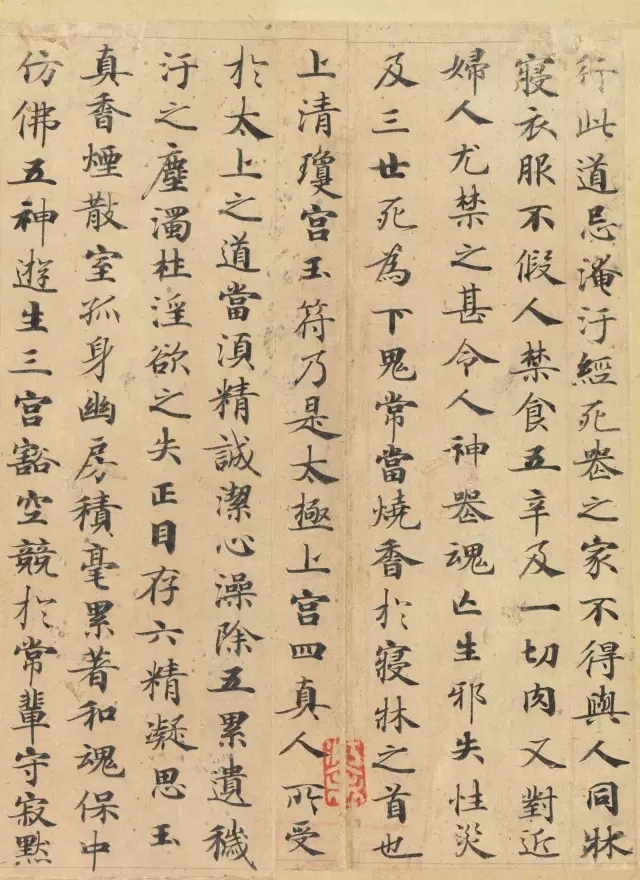 行此道忌淹汙經死丧之家不得與人同牀
寝衣服不假人禁食五辛及一切肉又對近
婦人尤禁之甚令人神丧魂亡生邪失性災
及三世死為下鬼常當燒香於寝牀之首也
上清瓊宫玉符乃是太極上宫四真人所受
於太上之道當湏精誠潔心澡除五累遺穢
汙之塵濁杜淫欲之失正目存六精凝思玉
真香煙散室孤身幽房積毫累著和魂保中
仿佛五神遊生三宫豁空競於常輩守寂默